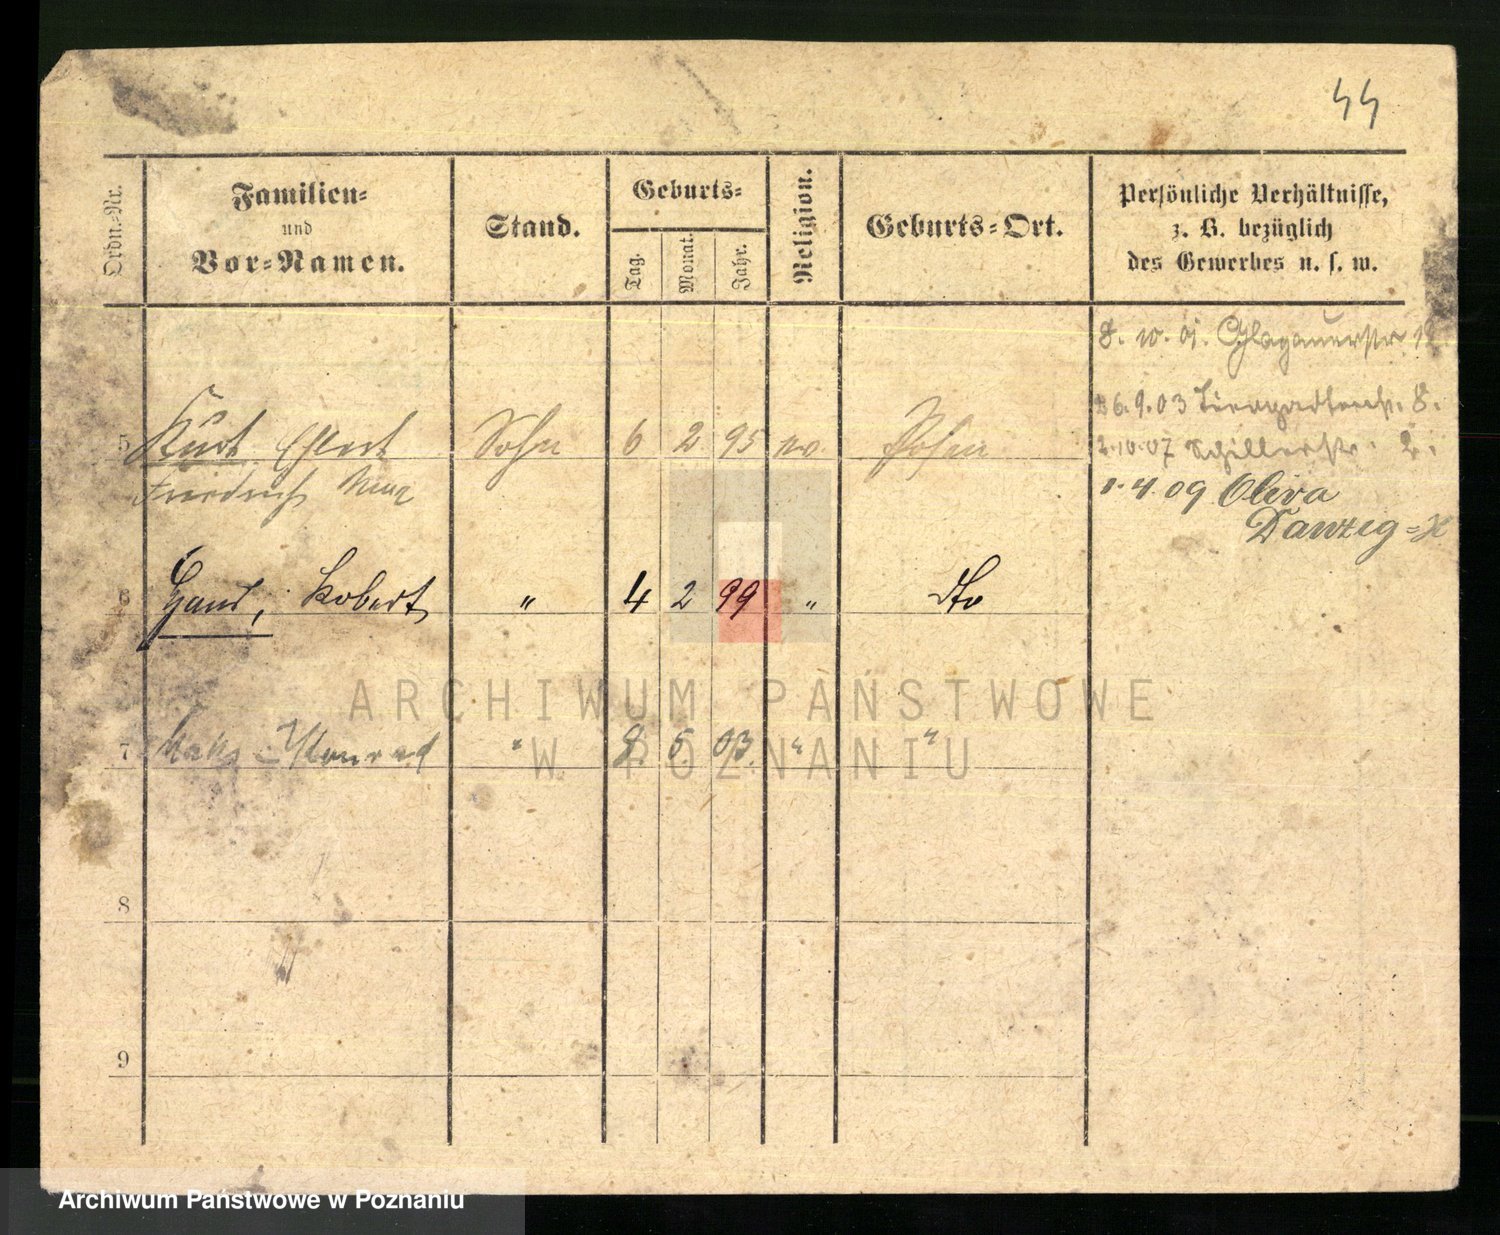 44
Ordn.-Nr.
Familien-
und
Vor-Namen.
Stand.
Geburts-
Tag.
Monat.
Jahr.
Religion.
Geburts-Ort.
Persönliche Verhältnisse,
z. B. bezüglich
des Gewerbes u. s. w.
8. 10. 01. Glogauerstr 12
26. 9. 03 Tiergartenstr. 8.
5 Kurt Sohn 6 2 95 Posen
2.10.07 Schillerstr. 2.
Friedrich Max
1.4.09 Oliva
Danzig
6 Hans, Robert " 4 2 99 " dto
ARCHIWUM PAŃSTWOWE
7 Hans Konrad " 8. 5. 03. " "
W POZNANIU
8
9
Archiwum Państwowe w Poznaniu